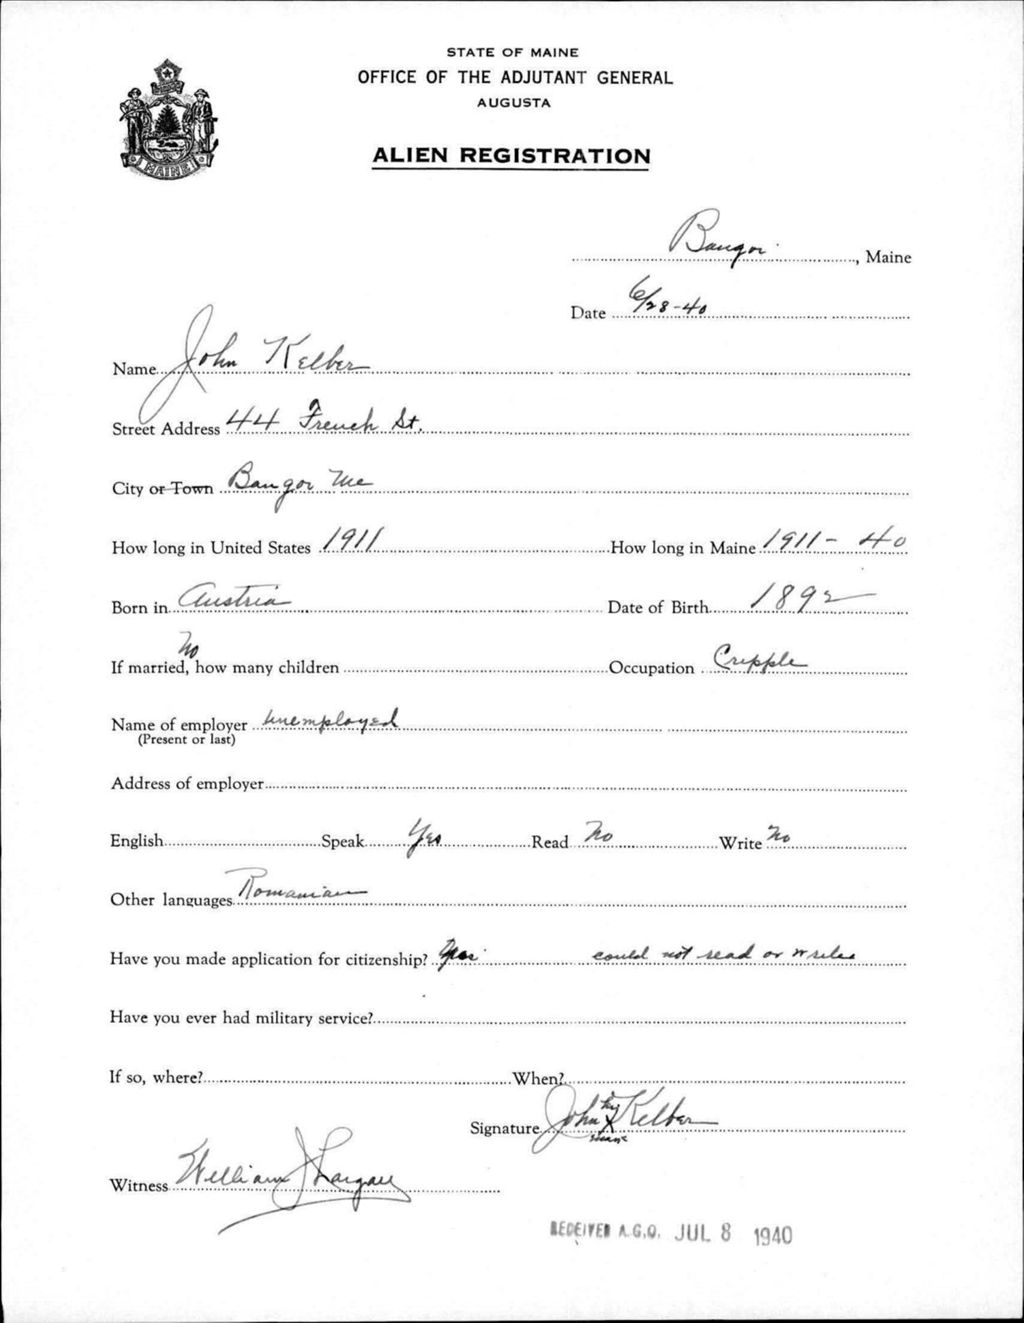 STATE OF MAINE
OFFICE OF THE ADJUTANT GENERAL
AUGUSTA
ALIEN REGISTRATION
MAINE
Bangor, Maine
Date 6/28-40
Name John Kelber
Street Address 44 French St.
City or Town Bangor Me
How long in United States 1911 How long in Maine 1911-40
Born in Austria Date of Birth 1892
No
If married, how many children Occupation Cripple
Name of employer unemployed
(Present or last)
Address of employer
English Speak Yes Read No Write No
Other languages Romanian
Have you made application for citizenship? Yes could not read or write
Have you ever had military service?
If so, where? When?
Signature John X Kelber
Witness William J
RECEIVED A.G.O. JUL 8 1940